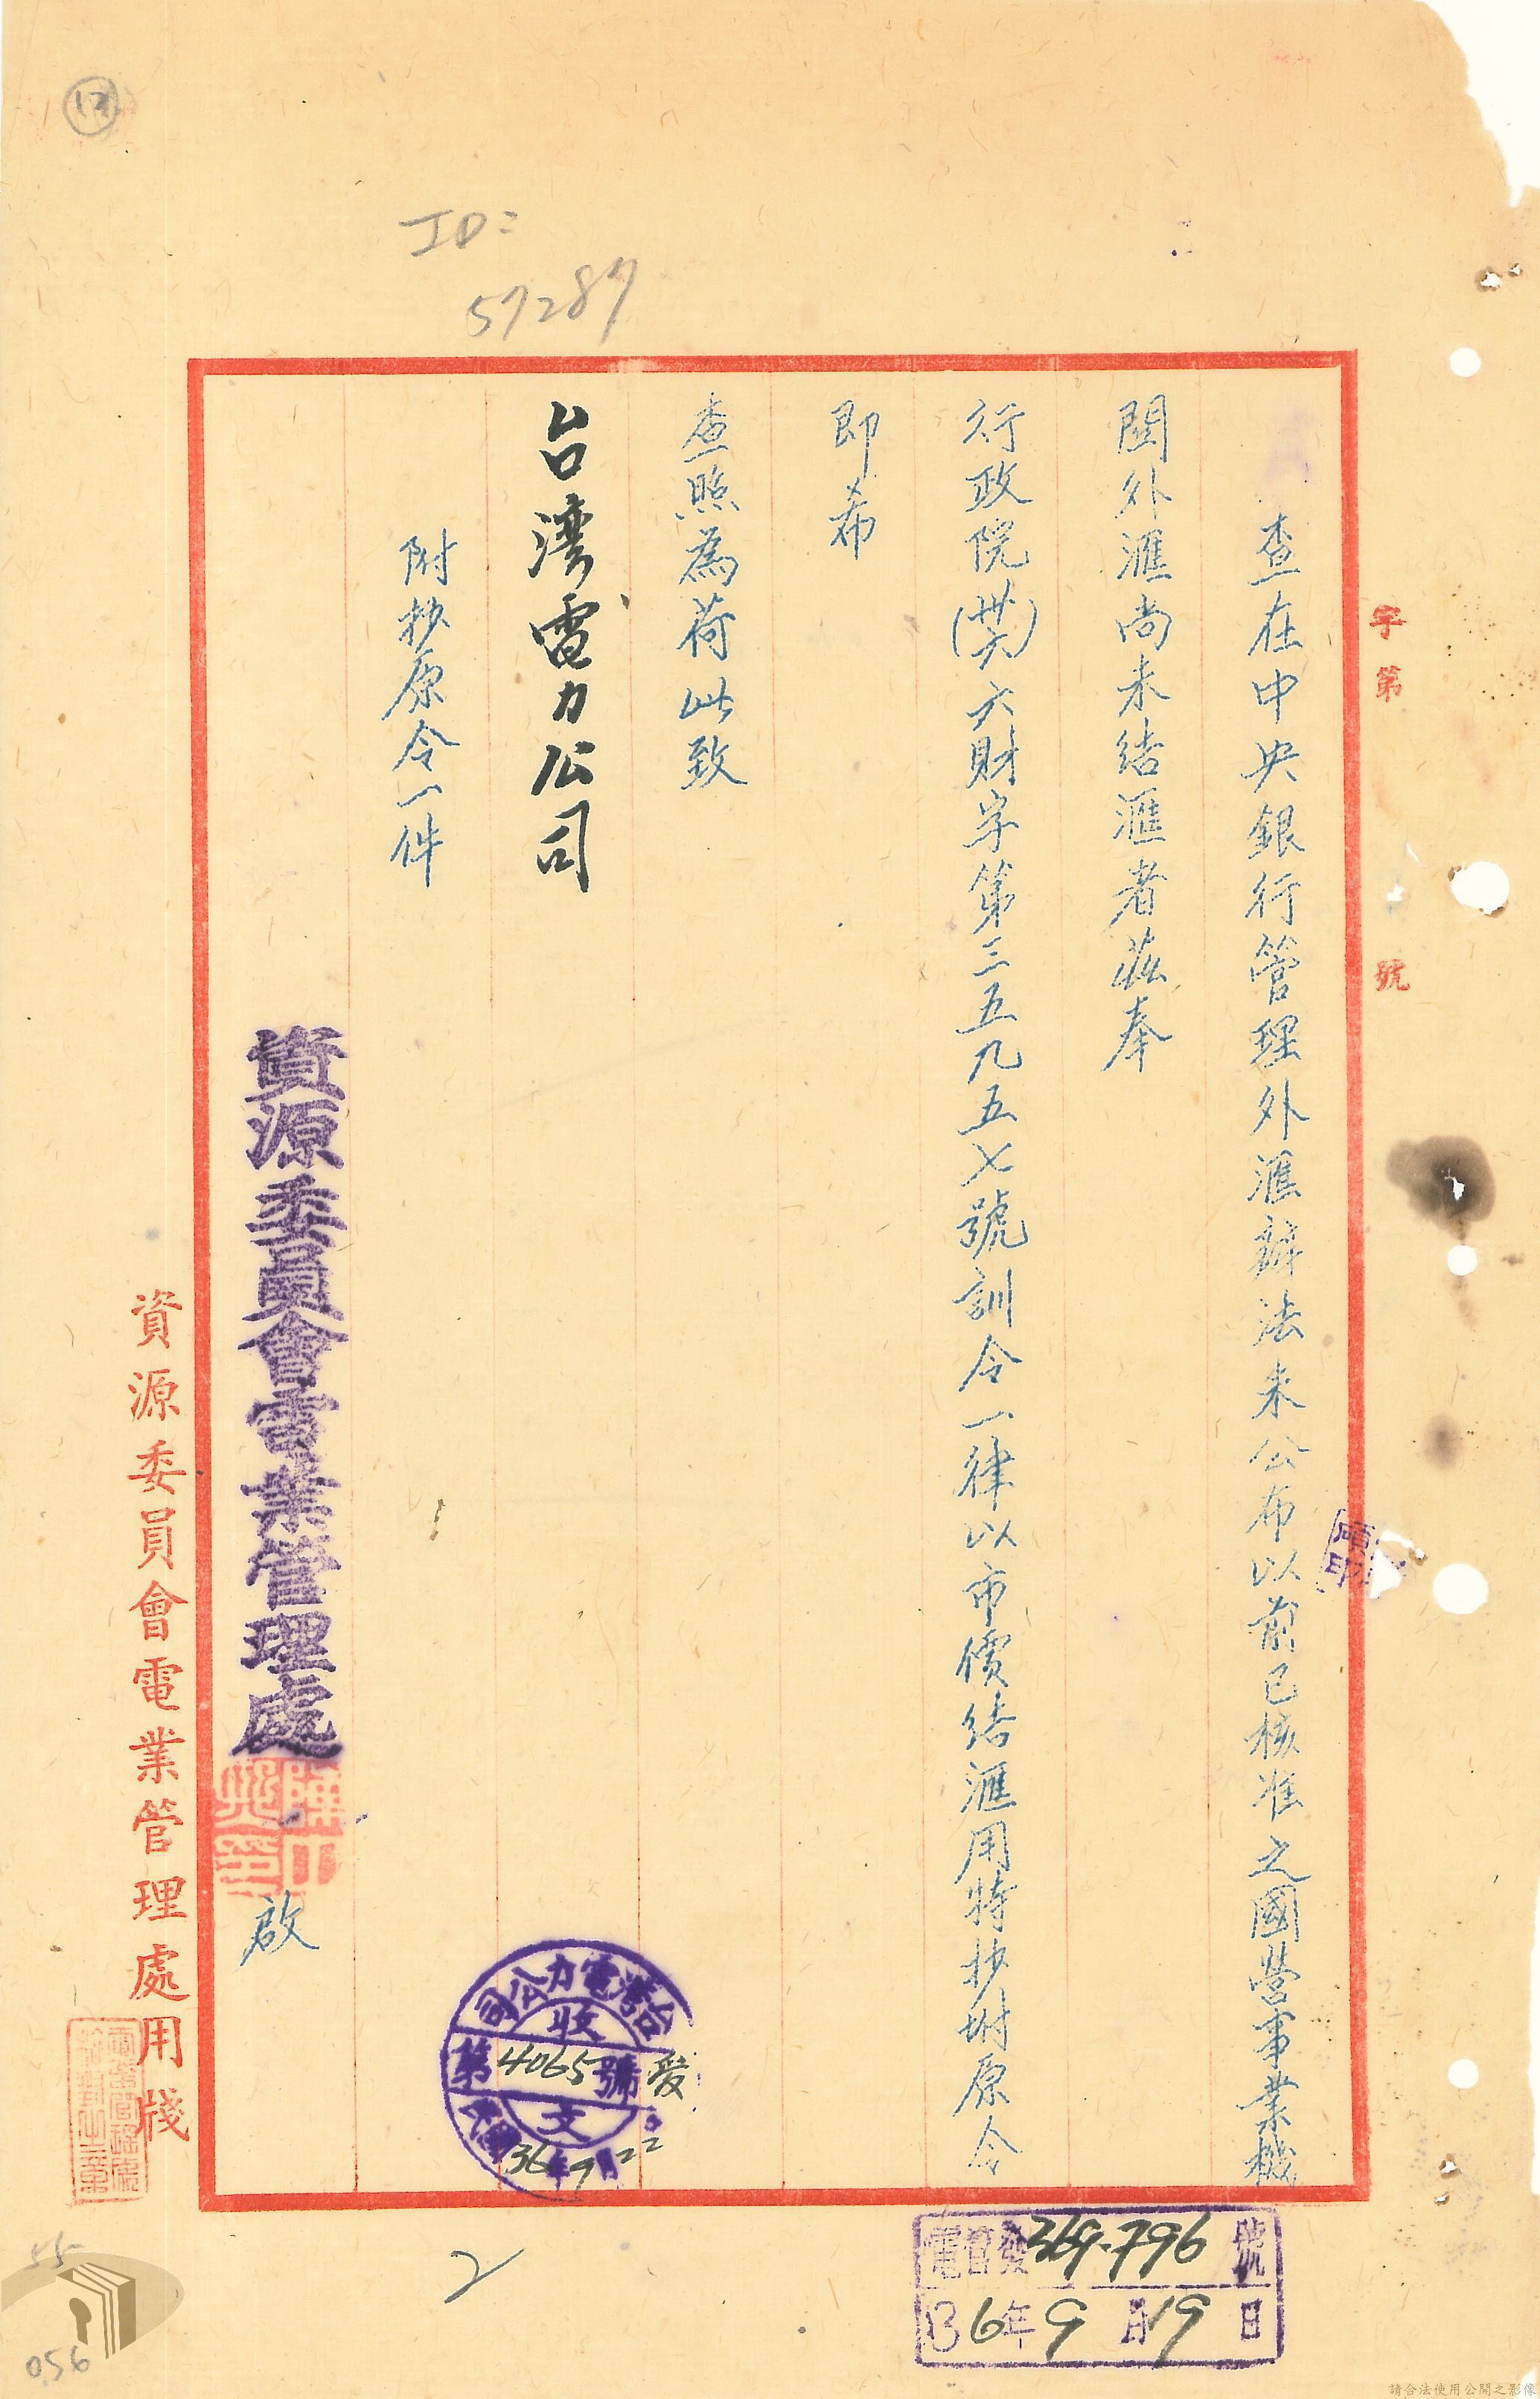 字第 號
查在中央銀行管理外滙辦法未公布以前已核准之國營事業機
関外滙尚未结滙者茲奉
行政院(卅六)六財字第三五九五七號訓令一律以市價结滙用特抄坿原令
即希
查照為荷此致
台湾電力公司
附抄原令一件
資源委員會電業管理處
啟
資源委員會電業管理處用牋
台灣電力公司
收
第4065號
文
36年9月22
電管發369.796號
36年9月19日
ID:
57287
2
55
056
請合法使用公開之影像